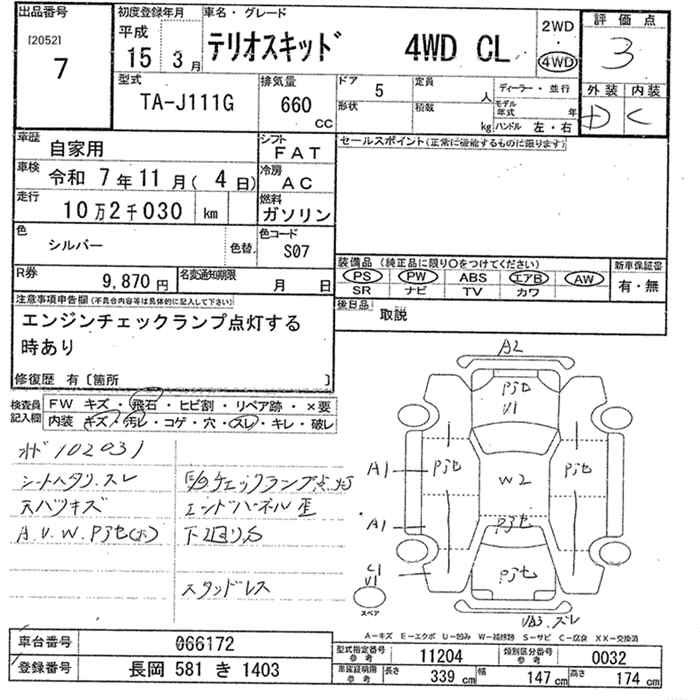 出品番号
[2052]
7
初度登録年月
平成
15 3月
車名・グレード
テリオスキッド 4WD CL
2WD
4WD
評価点
3
外装 内装
D C
型式
TA-J111G
排気量
660
cc
ドア
5
形状
定員
人
積載
kg
ディーラー・並行
モデル
年式 年
ハンドル 左・右
車歴
自家用
車検
令和 7年11月(4日)
走行
10万2千030 km
色
シルバー
色替
R券
9,870円
名変通知期限
月 日
シフト
FAT
冷房
AC
燃料
ガソリン
色コード
S07
セールスポイント(正常に機能するものに限ります)
装備品(純正品に限り○をつけてください)
PS PW ABS エアB AW
SR ナビ TV カワ
新車保証書
有・無
後日品
取説
注意事項申告欄(不具合内容等は具体的に記入して下さい)
エンジンチェックランプ点灯する
時あり
修復歴 有〔箇所 〕
検査員
記入欄
FW キズ・飛石・ヒビ割・リペア跡・×要
内装 キズ・汚レ・コゲ・穴・スレ・キレ・破レ
102031
シートヘタリ、スレ
天ハツキズ
A.U.W.
チェックランプ点灯
エンドパネル歪
下回りS
スタッドレス
A2
V1
A1
W2
A1
C1
V1
スペア
スレ
A-キズ E-エクボ U-凹み W-補修跡 S-サビ C-腐食 XX-交換済
車台番号
066172
登録番号
長岡 581 き 1403
型式指定番号
参考
11204
類別区分番号
参考
0032
車庫証明用
参考
長さ
339 cm
幅
147 cm
高さ
174 cm